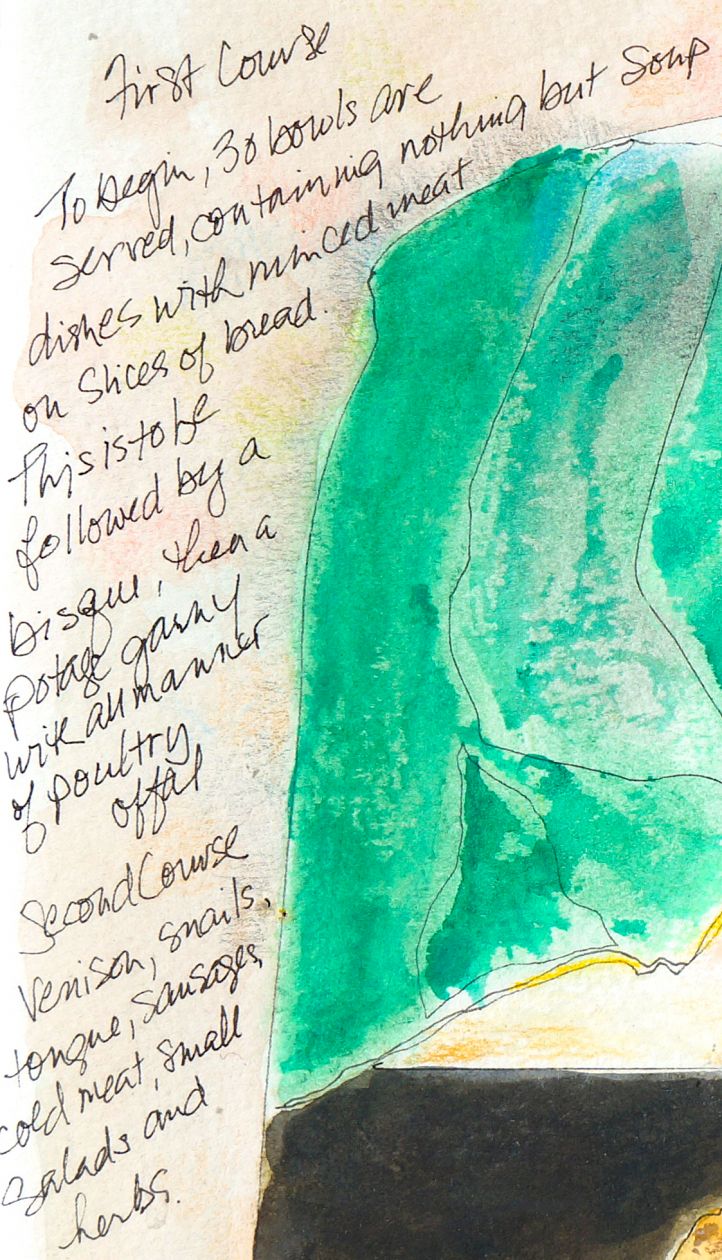 First Course
To begin, 30 bowls are
served, containing nothing but Soup
dishes with minced meat
on Slices of bread.
This is to be
followed by a
bisque, then a
potage
with all manner
of poultry
offal
Second Course
Venison, snails,
tongue, Sausages,
cold meat, small
Salads and
herbs.